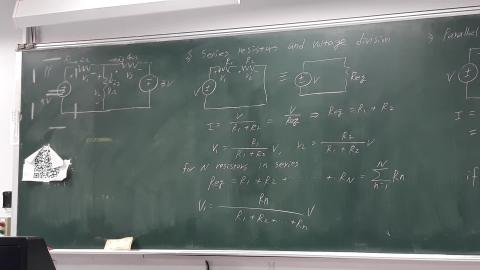 Series resistors and voltage division
R1 R2
V1 V2
V ≡ V Req
I = V / (R1 + R2) = V / Req ⇒ Req = R1 + R2
V1 = R1 / (R1 + R2) V, V2 = R2 / (R1 + R2) V
for N resistors in series
Req = R1 + R2 + · · · · · + RN = Σ(n=1 to N) Rn
V1 = Rn / (R1 + R2 + ·· + Rn) V
Parallel
V
I =
=
if